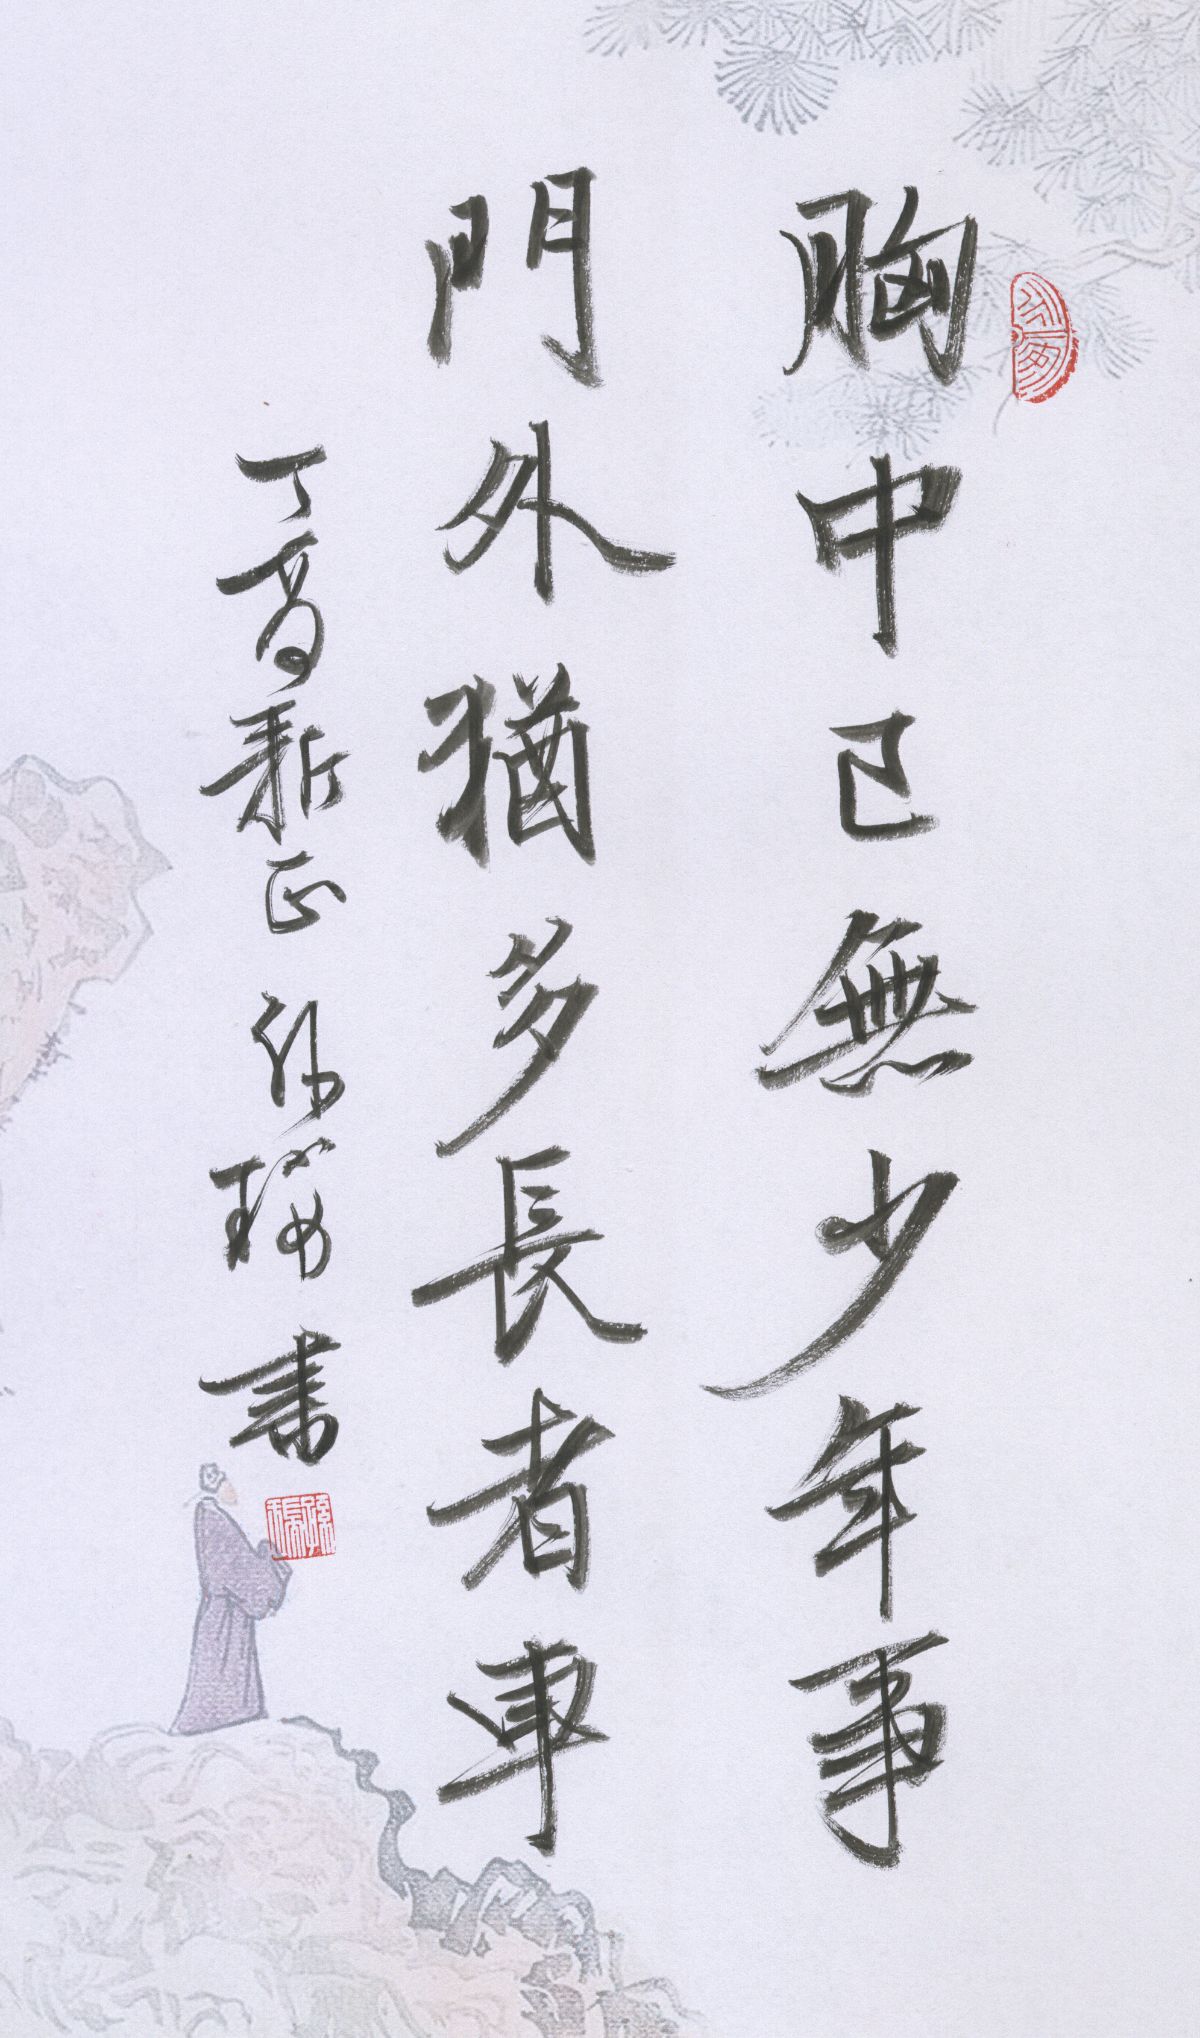 胸中已無少年事
門外猶多長者車
丁酉新正 孫瑞書